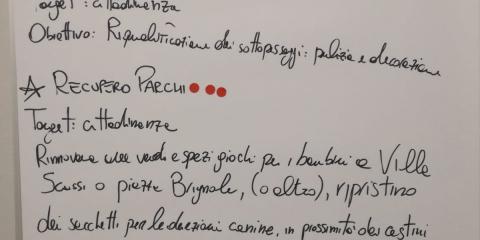 Target: cittadinanza
Obiettivo: Riqualificazione dei sottopassaggi: pulizia e decorazione
RECUPERO PARCHI
Target: cittadinanza
Rinnovare aree verdi e spazi giochi per i bambini a Ville
Scassi o piazza Brignole, (o altro), ripristino
dei secchetti per le deiezioni canine, in prossimità dei cestini